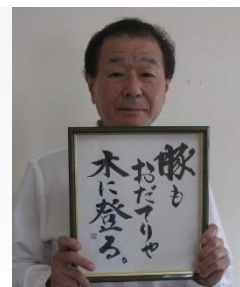 豚も
おだてりゃ
木に登る。